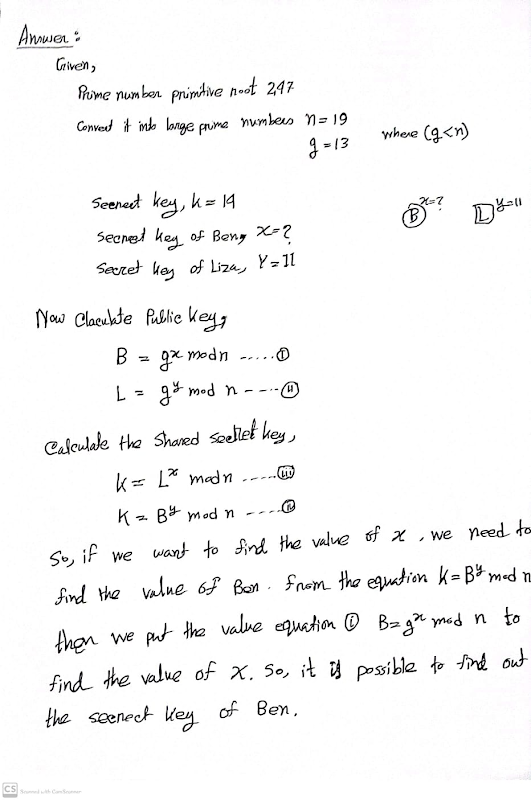 Answer :
Given,
Prime number primitive root 247
Convert it into large prime numbers n=19
g=13 where (g<n)
Secreet key, k= 14
Secreet key of Ben, x=?
Secret key of Liza, Y=11
B x=? L y=11
Now Claculate Public key,
B = gx modn .....(i)
L = g^y mod n ----(ii)
Calculate the Shared secret key,
K= L^x modn .....(iii)
K = B^y mod n ----(iv)
So, if we want to find the value of x, we need to
find the value of Ben. from the equation K=B^y mod n
then we put the value equation (i) B=g^x mod n to
find the value of x. So, it is possible to find out
the secreet key of Ben.
CS Scanned with CamScanner